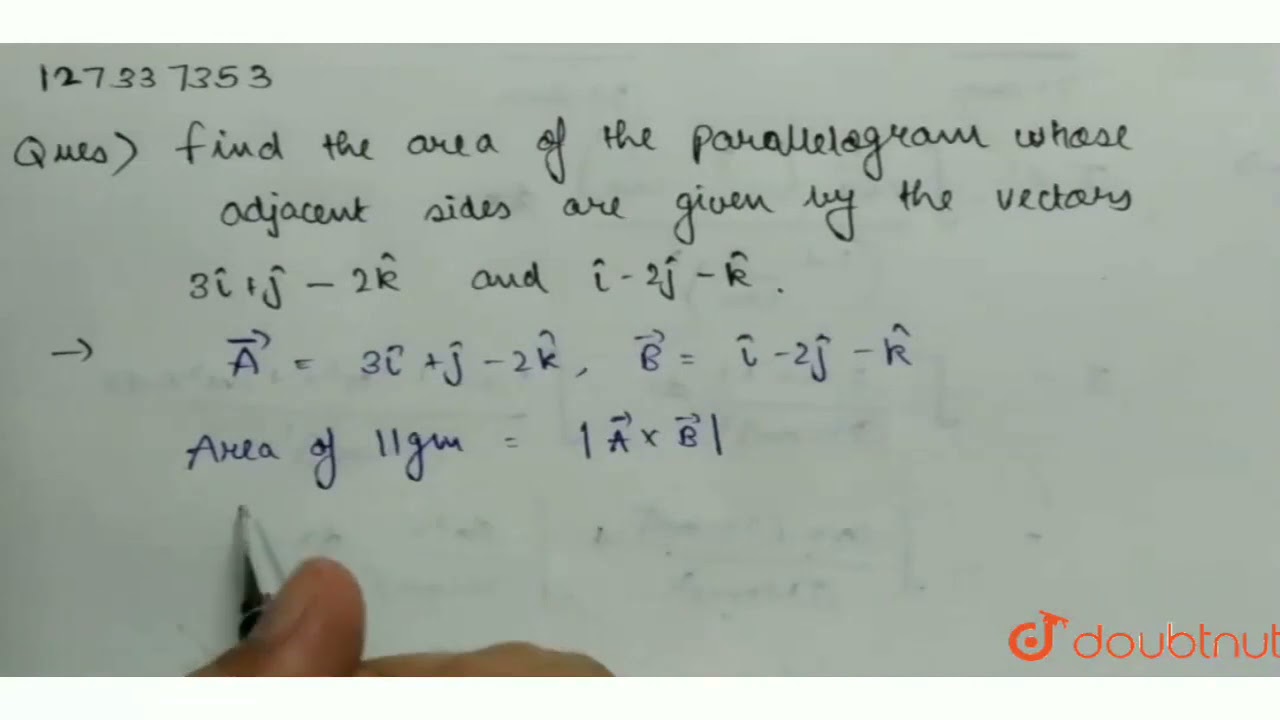 127337353
Ques) find the area of the parallelogram whose
adjacent sides are given by the vectors
3î+ĵ - 2k̂ and î - 2ĵ - k̂.
→ A⃗ = 3î + ĵ - 2k̂, B⃗ = î - 2ĵ - k̂
Area of llgm = |A⃗ × B⃗|
doubtnut